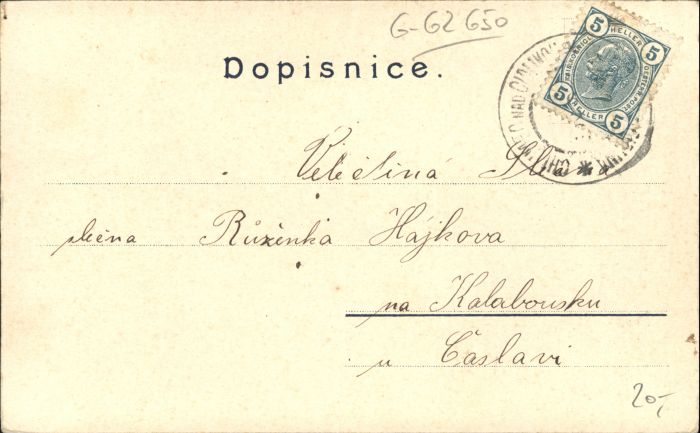 G-G2 650
Dopisnice.
5 HELLER 5
5 HELLER 5
NAD
Velectěná
slečna Růženka Hájkova
na Kalabousku
u Časlavi
20,-